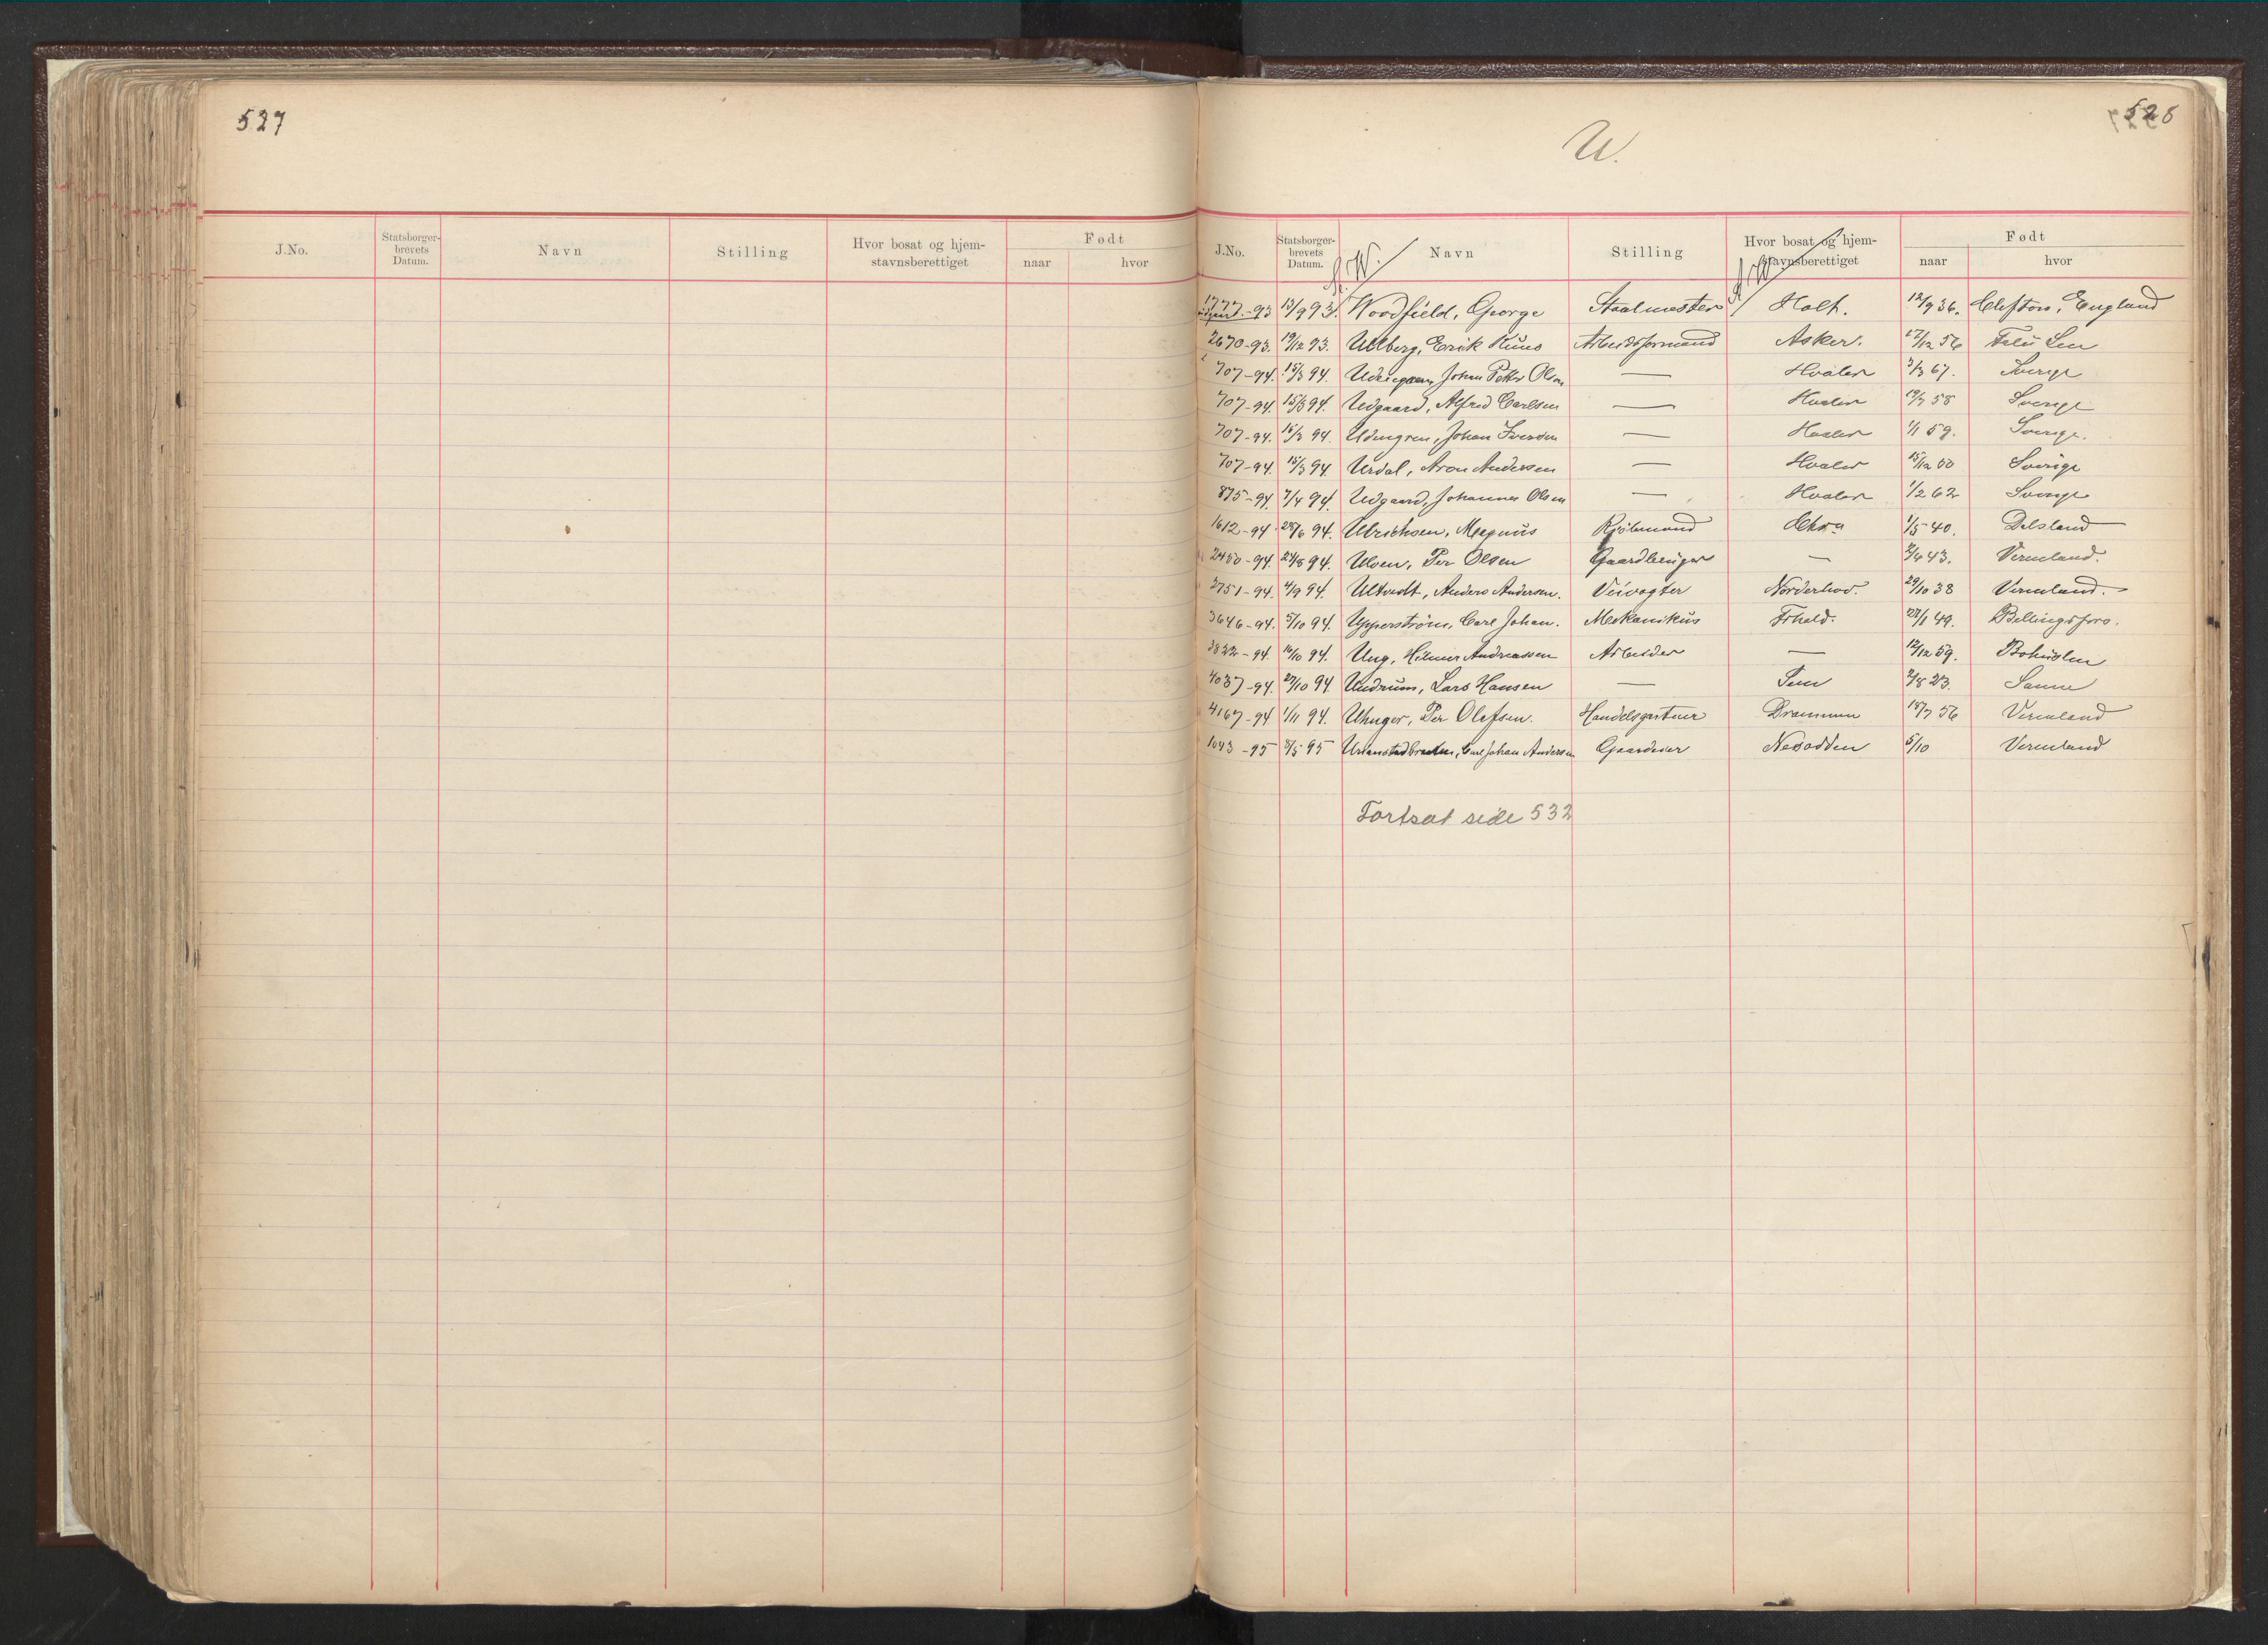 527
J.No. Statsborger-brevets Datum. Navn Stilling Hvor bosat og hjem-stavnsberettiget Født naar hvor
528
U.
J.No. Statsborger-brevets Datum. Navn Stilling Hvor bosat og hjem-stavnsberettiget Født naar hvor
1777-93 13/9 93. Woodfield, George Staalmester Holt. 12/9 36. England
2670-93. 19/12 93. Ullberg, Erik Kuno Arbeidsformand Asker. 17/12 56 Falu Len
707-94. 15/3 94. Johan Petter Olsen — Hvaler 3/3 67. Sverige
707-94. 15/3 94. Udgaard, Alfred Carlsen — Hvaler 19/7 58 Sverige
707-94. 15/3 94. Udengren, Johan Iversen — Hvaler 1/1 59. Sverige.
707-94. 15/3 94. Urdal, Aron Andersen — Hvaler 15/12 60 Sverige
875-94. 7/4 94. Udgaard, Johannes Olsen — Hvaler 1/2 62 Sverige
1612-94. 28/6 94. Ulrichsen, Magnus Kjølemand Chra 1/5 40. Dalsland
2450-94. 24/8 94. Ulven, Per Olsen Gaardbruger — 2/4 43. Vermland.
2751-94. 4/9 94. Ultvedt, Anders Andersen. Veivogter Norderhov. 29/10 38 Vermland.
3646-94. 5/10 94. Upperstrøm, Carl Johan. Mekanikus Frhald. 27/1 49. Billingsfors.
3822-94. 16/10 94. Ung, Hilmer Andreassen Arbeider — 12/12 59. Bohuslen
4037-94. 27/10 94. Undrum, Lars Hansen — Sem 2/8 23. Sanne
4167-94 1/11 94. Uhnger, Per Olofsen. Handelsgartner Drammen 18/7 56 Vermland
1043-95 8/5 95 Carl Johan Andersen Gaardeier Nesodden 5/10 Vermland
Fortsat side 532